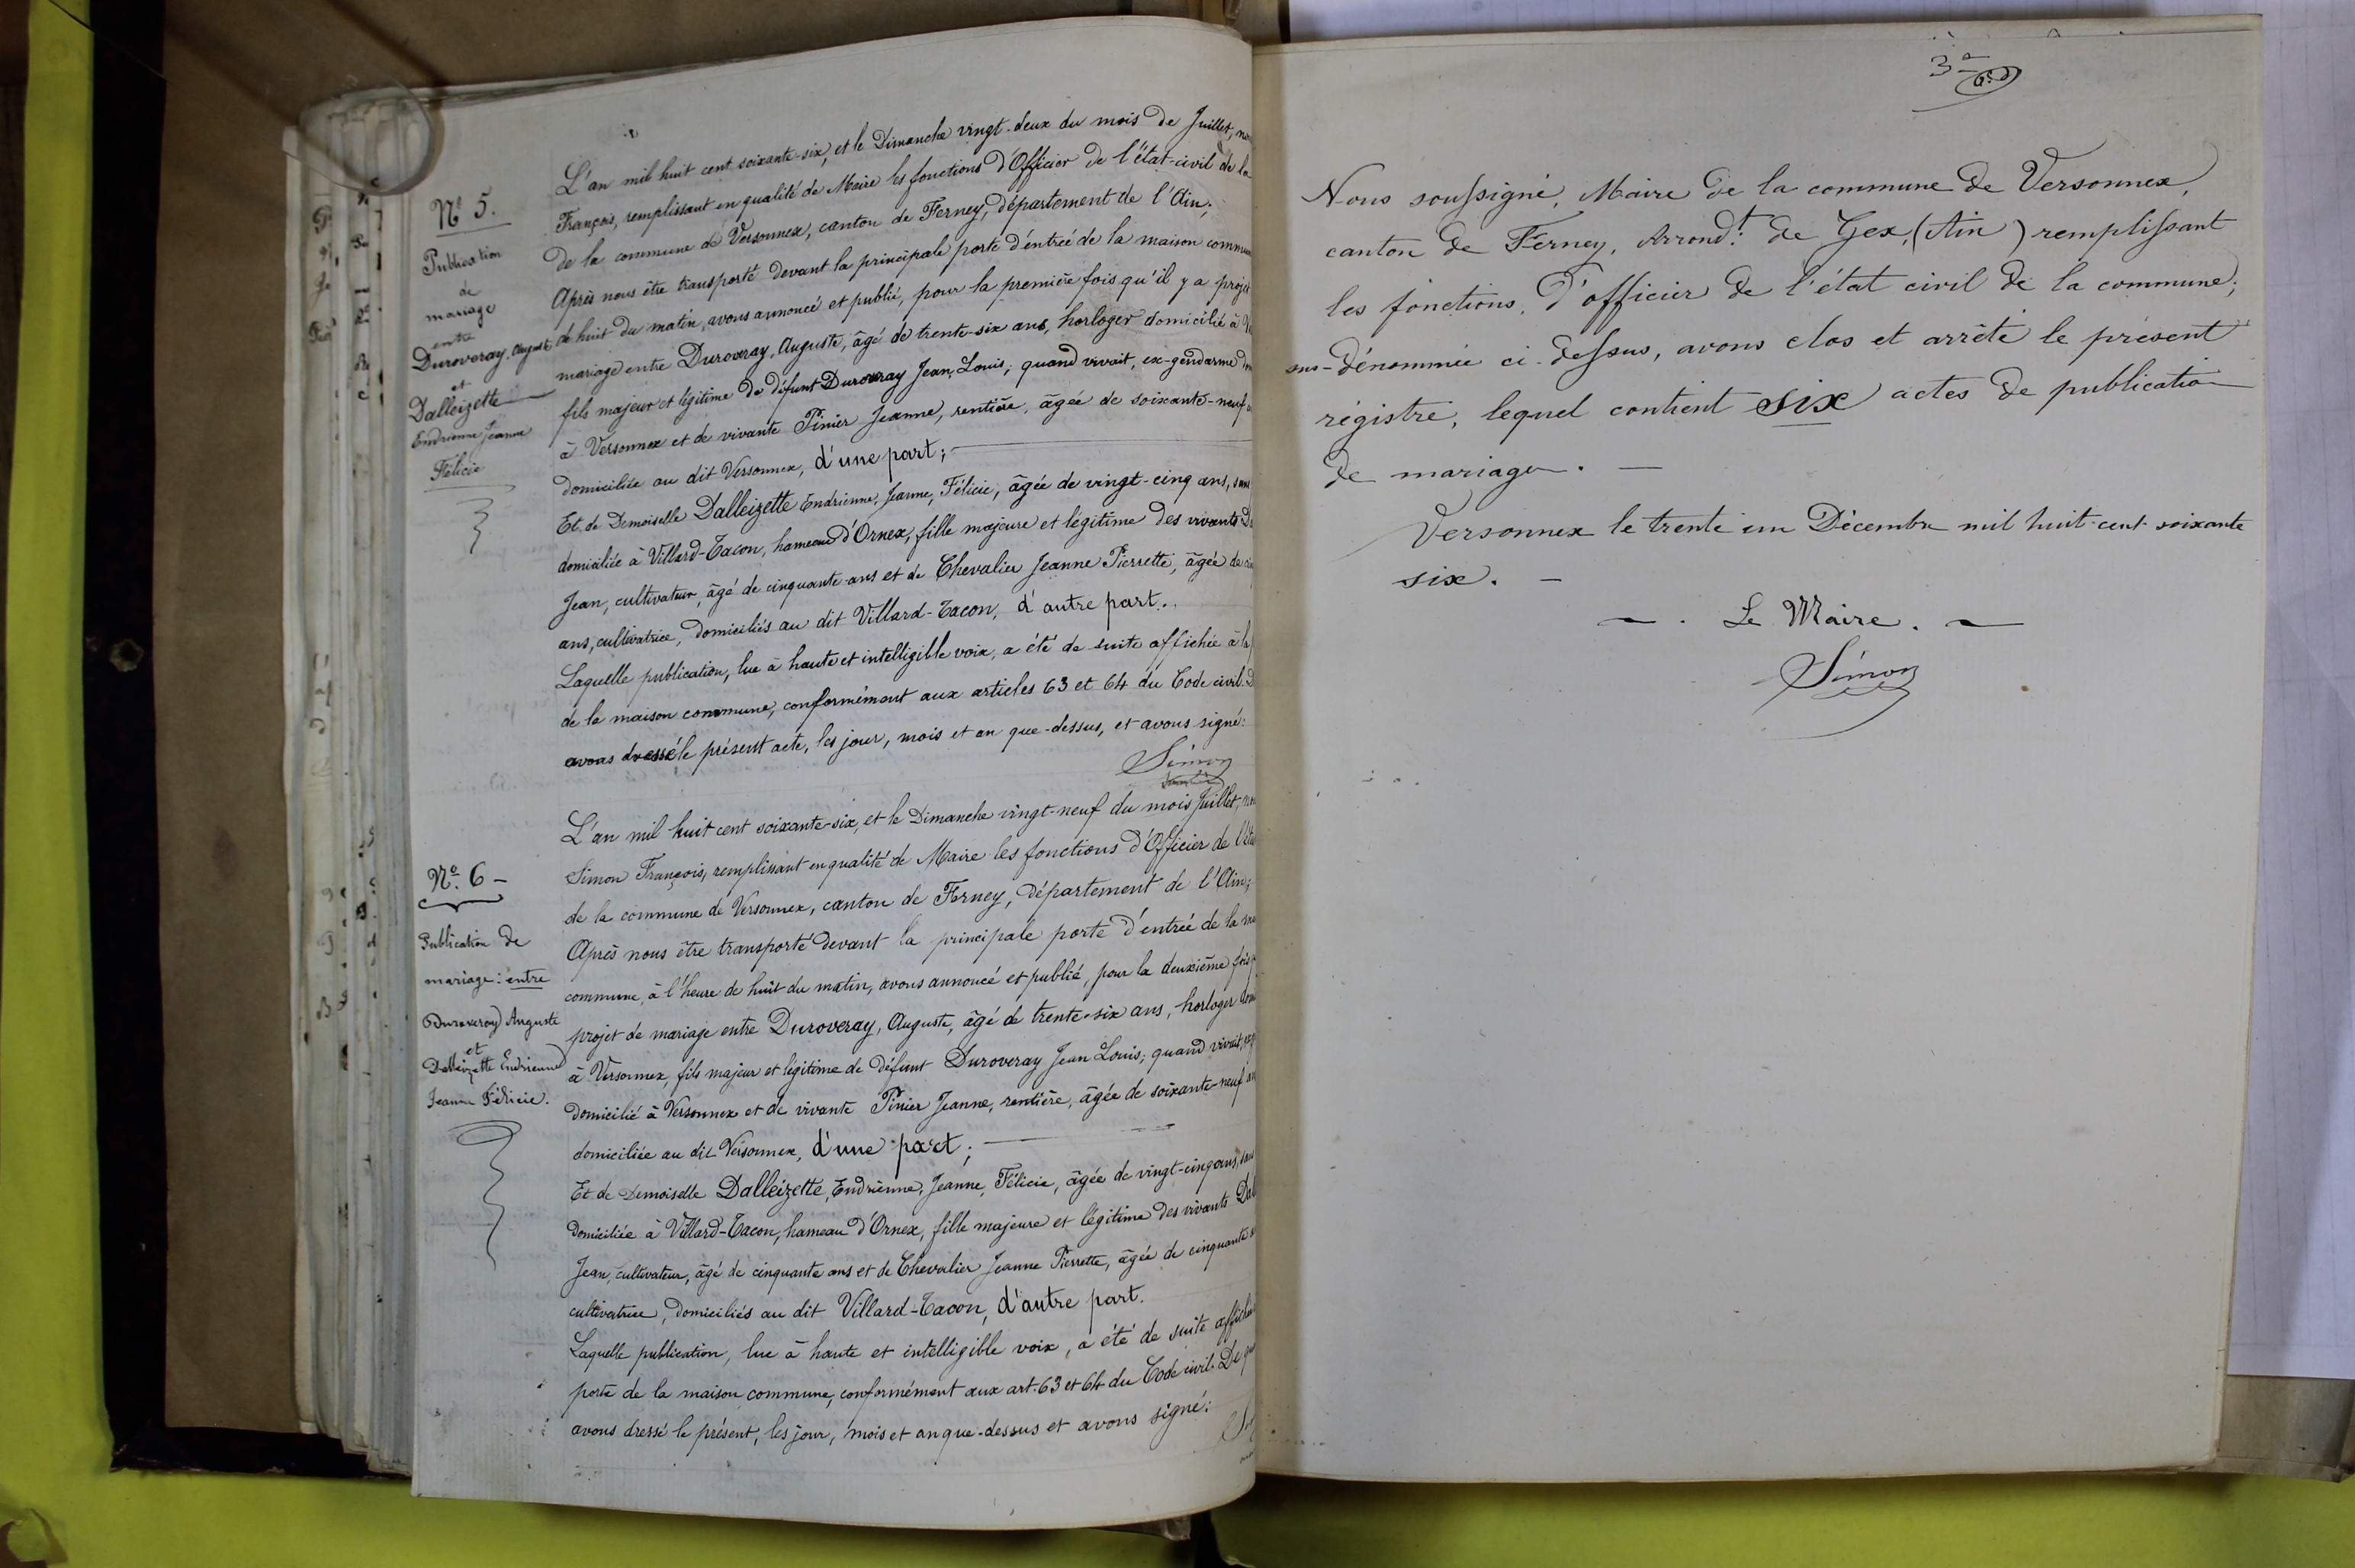 Nº 5.
Publication
de
mariage
entre
Duroveray, Auguste
et
Dalleizette
Endrienne Jeanne
Félicie
L'an mil huit cent soixante-six, et le Dimanche vingt-deux du mois de Juillet,
François, remplissant en qualité de Maire les fonctions d'Officier de l'état-civil de la
de la commune de Versonnex, canton de Ferney, département de l'Ain;
Après nous être transporté devant la principale porte d'entrée de la maison commun
de huit du matin, avons annoncé et publié, pour la première fois qu'il y a projet
mariage entre Duroveray, Auguste, âgé de trente-six ans, horloger domicilié à
fils majeur et légitime de défunt Duroveray Jean, Louis; quand vivait, ex-gendarme
à Versonnex et de vivante Pinier Jeanne, rentière, âgée de soixante-neuf
domiciliée au dit Versonnex, d'une part;
Et de Demoiselle Dalleizette Endrienne, Jeanne, Félicie, âgée de vingt-cinq ans, sans
domiciliée à Villard-Tacon, hameau d'Ornex, fille majeure et légitime des vivants
Jean, cultivateur, âgé de cinquante ans et de Chevalier Jeanne Pierrette, âgée de
ans, cultivatrice, domiciliés au dit Villard-Tacon, d'autre part.
Laquelle publication, lue à haute et intelligible voix, a été de suite affichée à la
de la maison commune, conformément aux articles 63 et 64 du Code civil.
avons dressé le présent acte, les jour, mois et an que-dessus, et avons signé:
Simon
Nº 6 -
Publication de
mariage: entre
Duroveray Auguste
et
Dalleizette Endrienne
Jeanne Félicie.
L'an mil huit cent soixante-six, et le Dimanche vingt-neuf du mois Juillet,
Simon François, remplissant en qualité de Maire les fonctions d'Officier de l'éta
de la commune de Versonnex, canton de Ferney, département de l'Ain;
Après nous être transporté devant la principale porte d'entrée de la
commune, à l'heure de huit du matin, avons annoncé et publié, pour la deuxième fois
projet de mariage entre Duroveray, Auguste, âgé de trente-six ans, horloger
à Versonnex, fils majeur et légitime de défunt Duroveray Jean Louis; quand vivait,
domicilié à Versonnex et de vivante Pinier Jeanne, rentière, âgée de soixante-neuf
domiciliée au dit Versonnex, d'une part;
Et de Demoiselle Dalleizette, Endrienne, Jeanne, Félicie, âgée de vingt-cinq ans, sans
domiciliée à Villard-Tacon, hameau d'Ornex, fille majeure et légitime des vivants
Jean, cultivateur, âgé de cinquante ans et de Chevalier Jeanne Pierrette, âgée de cinquante
cultivatrice, domiciliés au dit Villard-Tacon, d'autre part.
Laquelle publication, lue à haute et intelligible voix, a été de suite affichée
porte de la maison commune, conformément aux art. 63 et 64 du Code civil. De
avons dressé le présent, les jour, mois et an que-dessus et avons signé:
3e
Nous soussigné, Maire de la commune de Versonnex,
canton de Ferney, Arrondt. de Gex, (Ain) remplissant
les fonctions, d'officier de l'état civil de la commune,
sus-dénommée ci-dessus, avons clos et arrêté le présent
régistre, lequel contient six actes de publication
de mariage. —
Versonnex le trente un Décembre mil huit-cent-soixante
six. —
Le Maire.
Simon